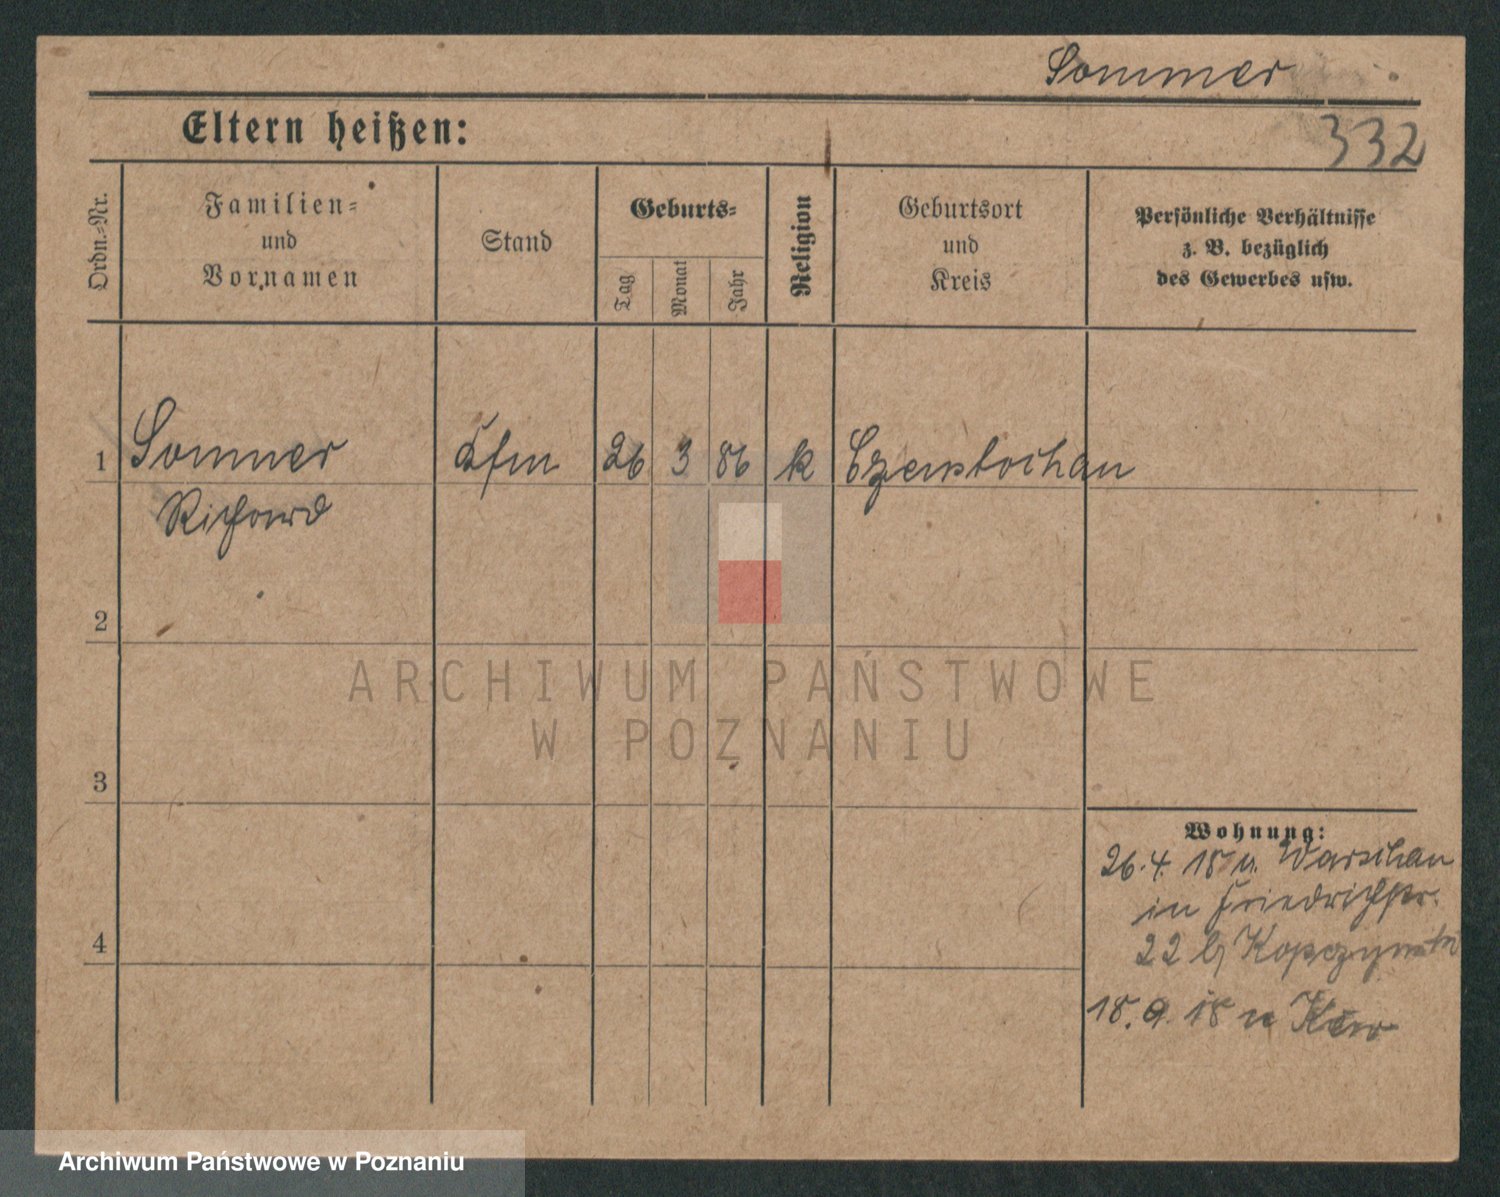 Sommer
332
Eltern heißen:
Ordn.-Nr.
Familien-
und
Vornamen
Stand
Geburts-
Tag
Monat
Jahr
Religion
Geburtsort
und
Kreis
Persönliche Verhältnisse
z. B. bezüglich
des Gewerbes usw.
1 Sommer Kfm 26 3 86 k Czenstochau
Richard
2
3
4
Wohnung:
26. 4. 18 v. Warschau
in Friedrichstr.
22 b/
18. 9. 18 n
ARCHIWUM PAŃSTWOWE
W POZNANIU
Archiwum Państwowe w Poznaniu